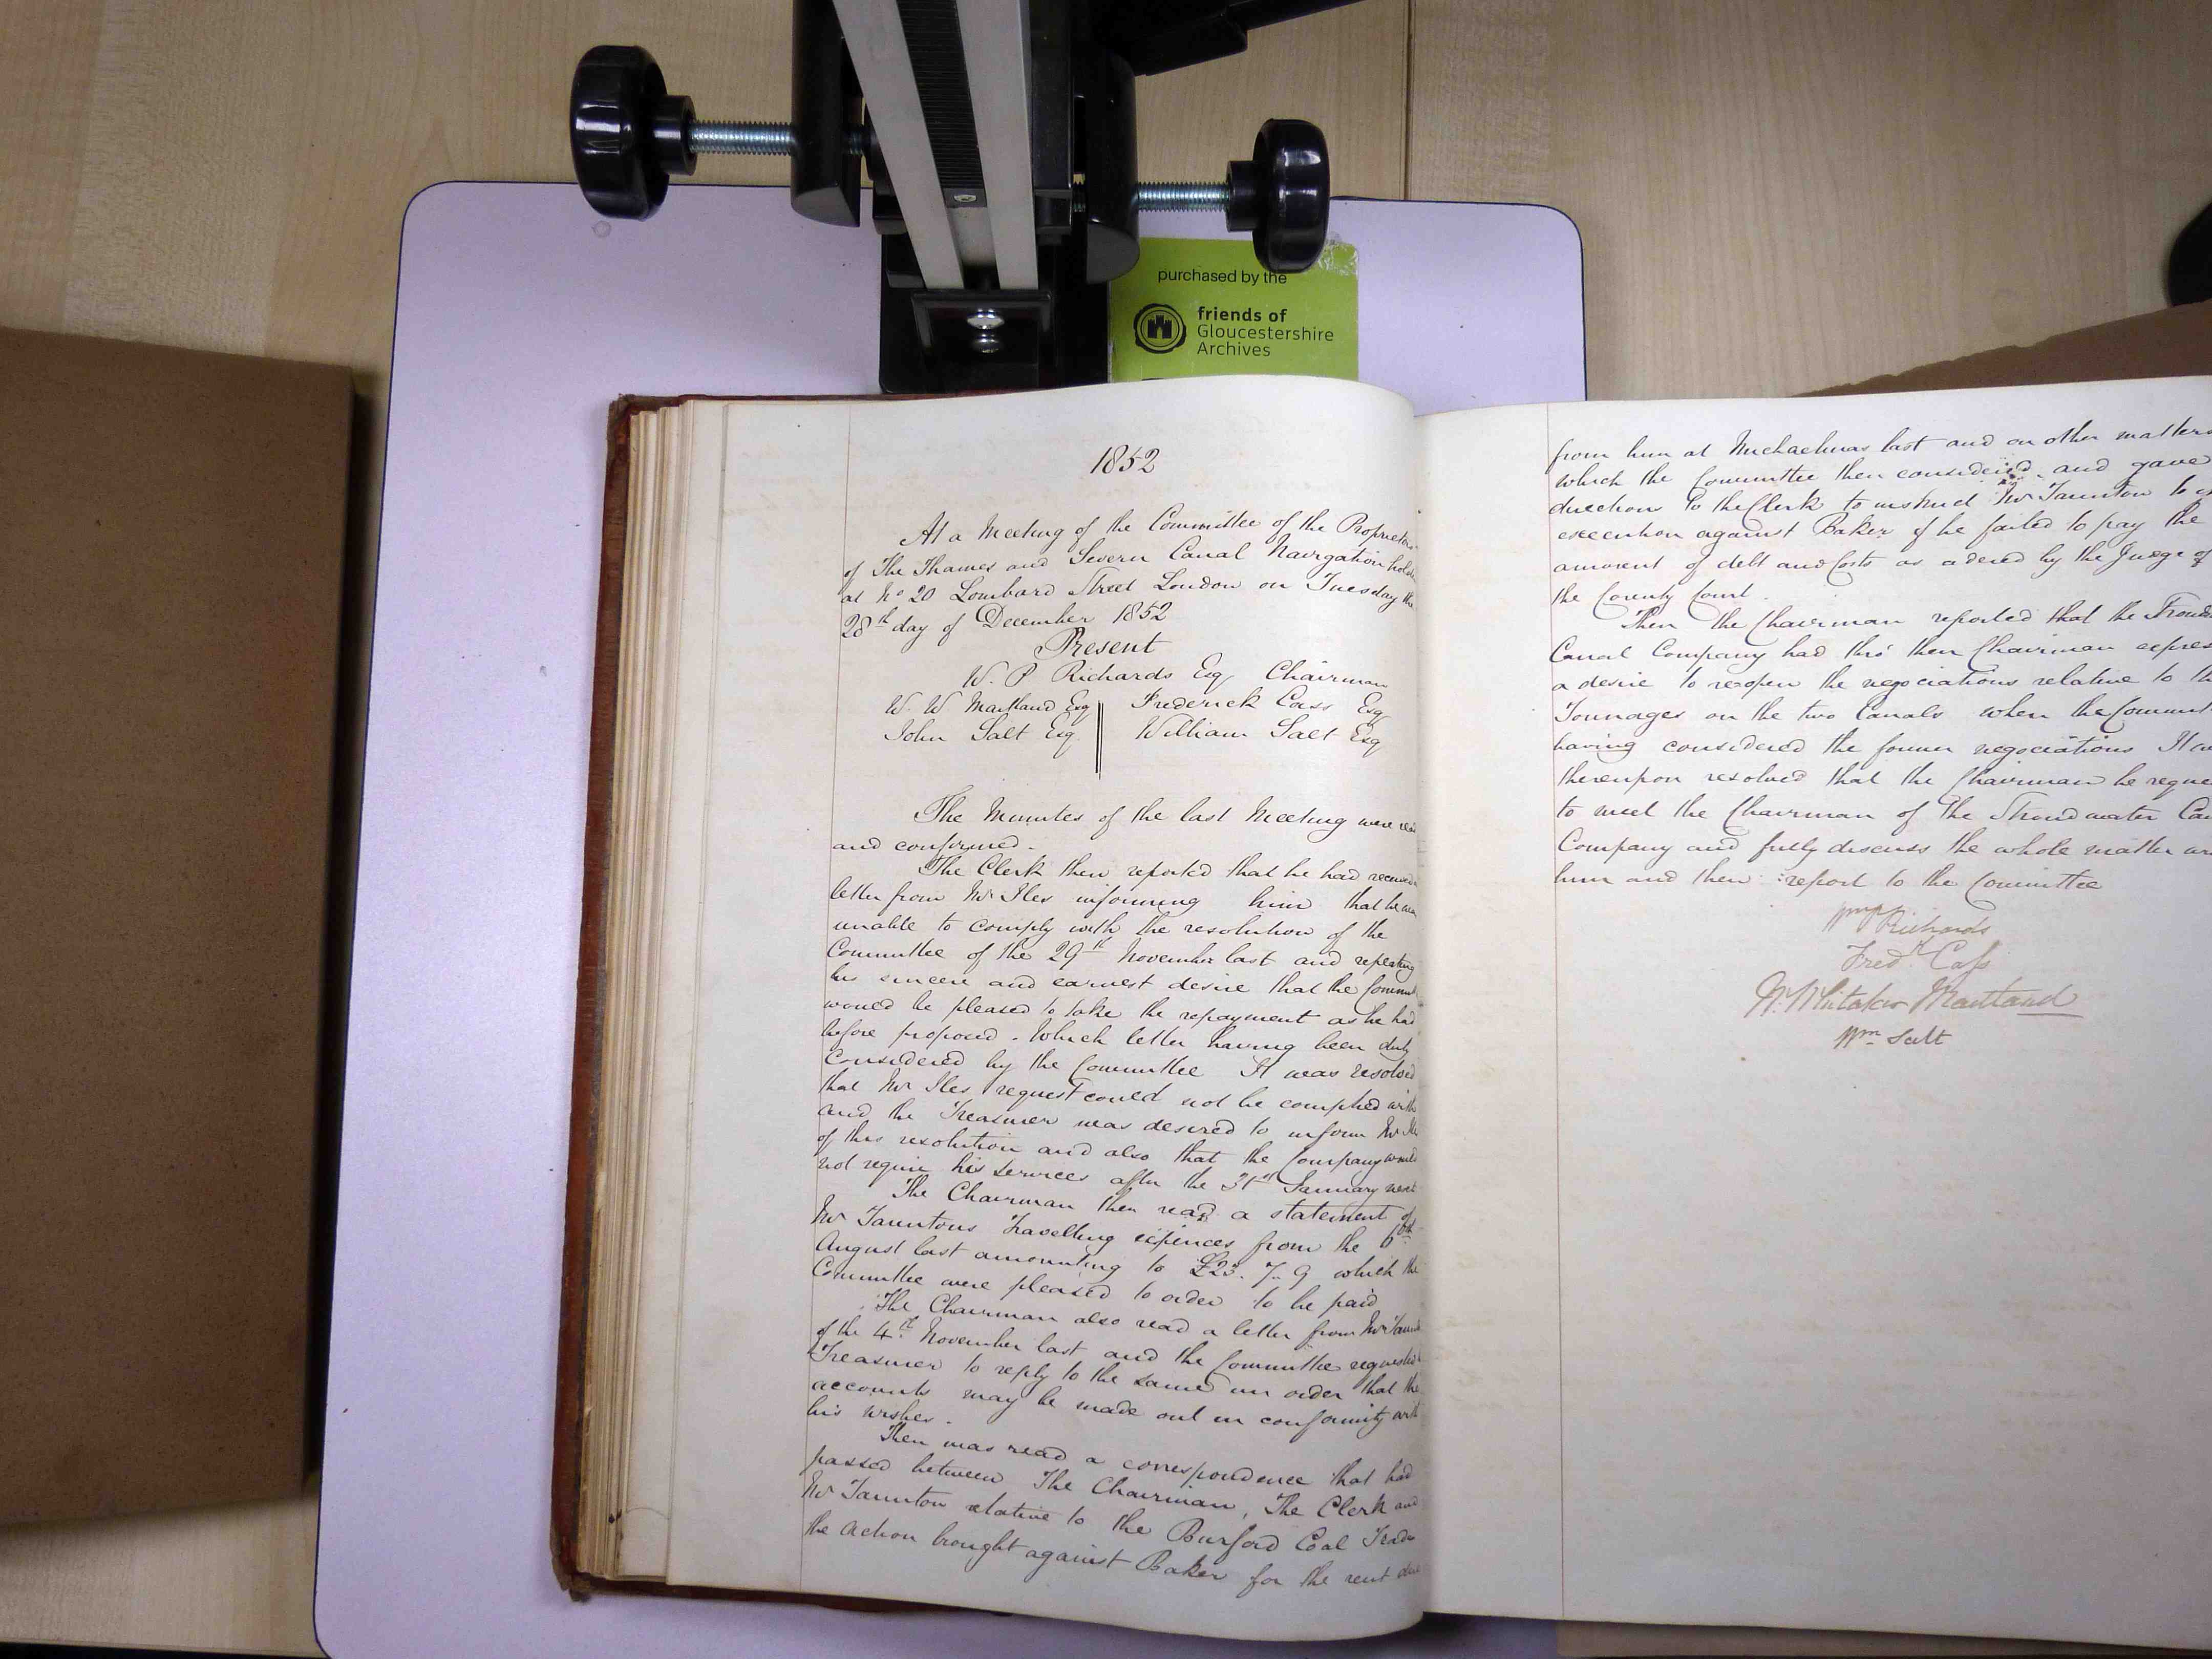 purchased by the
friends of
Gloucestershire
Archives
1852
At a Meeting of the Committee of the Proprietors
of The Thames and Severn Canal Navigation holden
at No 20 Lombard Street London on Tuesday the
28th day of December 1852
Present
W. P Richards Esq Chairman
W. W. Maitland Esq Frederick Cass Esq
John Salt Esq William Salt Esq
The Minutes of the last Meeting were read
and confirmed.
The Clerk then reported that he had received
letter from Mr Iles informing him that he was
unable to comply with the resolution of the
Committee of the 29th November last and repeating
his sincere and earnest desire that the Commit
would be pleased to take the repayment as he had
before proposed. Which letter having been duly
Considered by the Committee It was resolved
that Mr Iles request could not be complied with
and the Treasurer was desired to inform Mr Iles
of this resolution and also that the Company would
not require his services after the 31st January next
The Chairman then read a statement of
Mr Tauntons Travelling expences from the 6th
August last amounting to £23. 7. 9 which the
Committee were pleased to order to be paid
The Chairman also read a letter from Mr Taun
of the 4th November last and the Committee requested
Treasurer to reply to the same in order that the
accounts may be made out in conformity with
his wishes.
Then was read a correspondence that had
passed between The Chairman, The Clerk and
Mr Taunton relative to the Burford Coal Trade
the action brought against Baker for the rent due
from him at Michaelmas last and on other matters
which the Committee then considered and gave
directions to the Clerk to instruct Mr Taunton to
execution against Baker if he failed to pay the
amount of debt and Costs as odered by the Judge of
the County Court.
Then the Chairman reported that the Stroud
Canal Company had thro' their Chairman expres
a desire to reopen the negociations relative to th
Tonnages on the two Canals when the Commit
having considered the former negociations It w
thereupon resolved that the Chairman be reque
to meet the Chairman of the Stroudwater Ca
Company and fully discuss the whole matter wi
him and then report to the Committee
Wm P Richards
Fredk Cass
W. Whitaker Maitland
Wm Salt